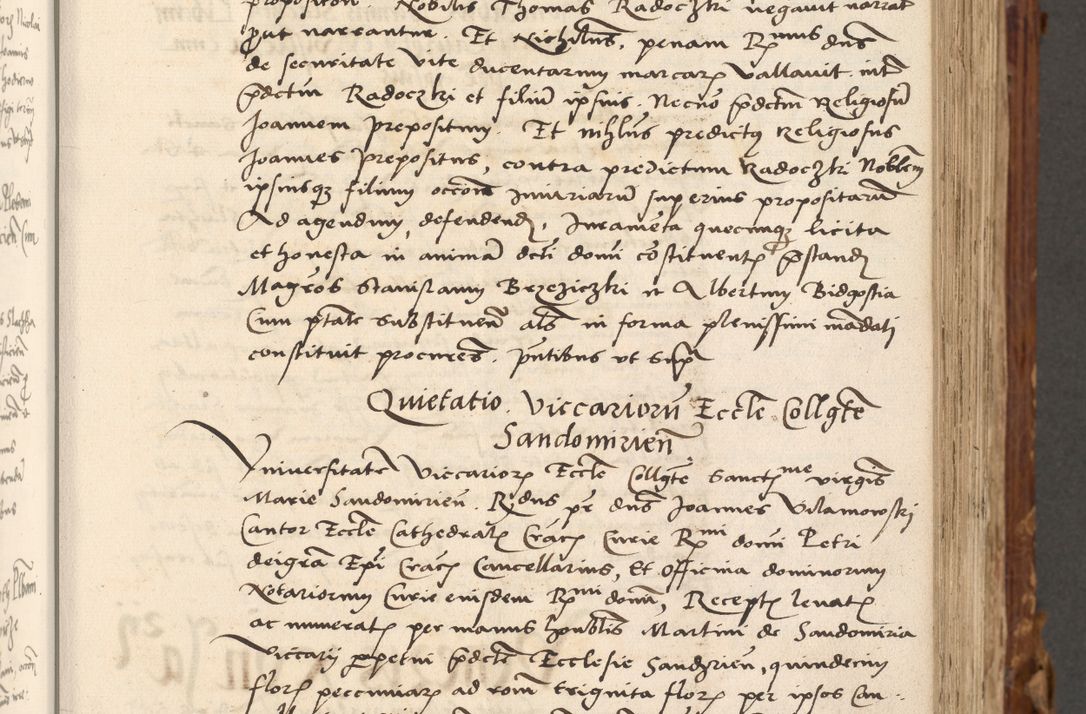 propositoꝝ. Nobilis Thomas Radoczki negavit narrata
put narrantur. Et Nichilus, penam Rmus dns
de securitate vite ducentarum marcarꝫ vallavit inter
pdctum Radoczki et filium ipsius. Necno pdctm Religiosum
Joannem prepositum. Et nihlus predictus Religiosus
Joannes prepositus, contra predictum Radoczki Noblem
ipsiusqꝫ filium occone iniuriarum superius propositarum
Ad agendum, defendend, Juramenta quecunqꝫ licita
et honesta in animam dcti domi constituentꝫ pstand
Magros Stanislaum Brzeziczki et Albertum Bidgostia
Cum ptate substituen als in forma plenissimi madati
constituit procures. pntibus ut sup
Quietatio. Viccariorum Eccle Collgte
Sandomirien
Universitate Viccariorꝫ Eccle Collgte Sanctme virgis
Marie Sandomirien. Rdus pr dns Joannes Vilamowski
Cantor Eccle Cathedralꝫ Cracꝫ Curie Rmi domi Petri
deigra Epi Cracꝫ Cancellarius, Et officina dominorum
Notariorum Curie eiusdem Rmi domi, Receptꝫ levatꝫ
ac numeratꝫ per manus honblis Martini de Sandomiria
viccarij perpetui pdcte Ecclesie Sandrien, quindecim
florꝫ pecuniarꝫ ad roni triginta florꝫ per ipsos Can-